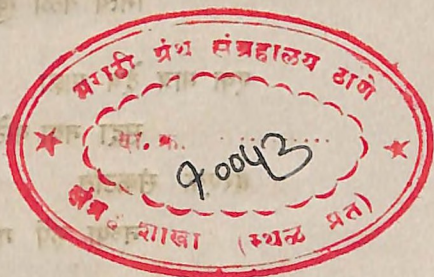 मराठी ग्रंथ संग्रहालय ठाणे
सं. क्र. ............
१००५३
शाखा (स्थळ प्रत)